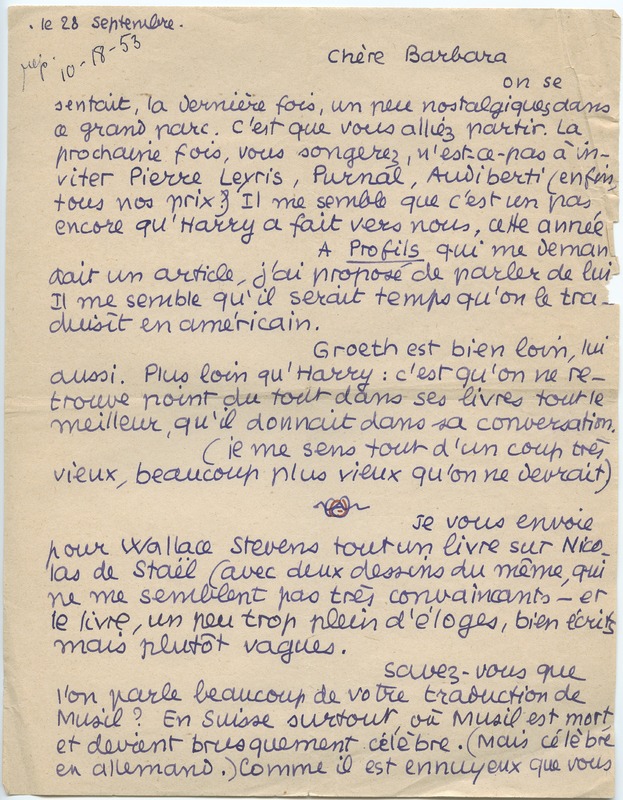 . le 28 septembre.
rép. 10-18-53
Chère Barbara
on se
sentait, la dernière fois, un peu nostalgiques dans
ce grand parc. C'est que vous alliez partir. La
prochaine fois, vous songerez, n'est-ce-pas à in-
viter Pierre Leyris, Purnal, Audiberti (enfin,
tous nos prix? Il me semble que c'est un pas
encore qu'Harry a fait vers nous, cette année
A Profils qui me deman
dait un article, j'ai proposé de parler de lui
Il me semble qu'il serait temps qu'on le tra-
duisît en américain.
Groeth est bien loin, lui
aussi. Plus loin qu'Harry : c'est qu'on ne re-
trouve point du tout dans ses livres tout le
meilleur, qu'il donnait dans sa conversation.
(je me sens tout d'un coup très
vieux, beaucoup plus vieux qu'on ne devrait)
Je vous envoie
pour Wallace Stevens tout un livre sur Nico-
las de Staël (avec deux dessins du même, qui
ne me semblent pas très convaincants - et
le livre, un peu trop plein d'éloges, bien écrits
mais plutôt vagues.
savez-vous que
l'on parle beaucoup de votre traduction de
Musil? En Suisse surtout, où Musil est mort
et devient brusquement célèbre. (Mais célèbre
en allemand.) Comme il est ennuyeux que vous